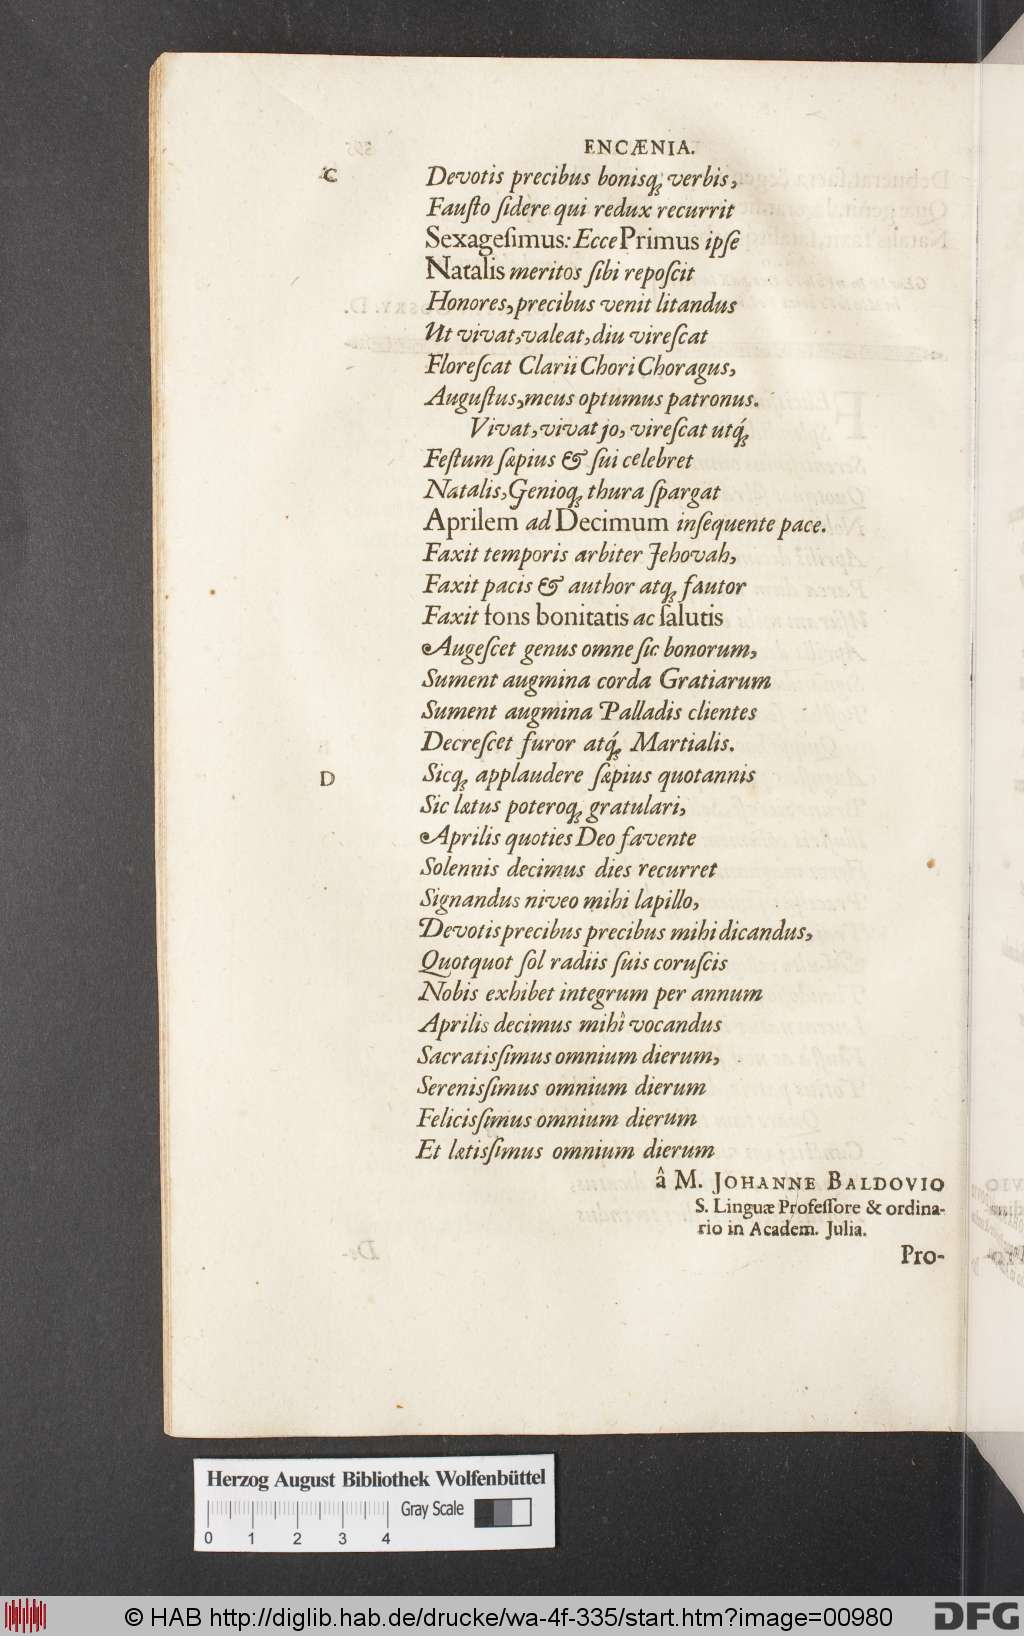 ENCÆNIA.
C
Devotis precibus bonisq́; verbis,
Fauſto ſidere qui redux recurrit
Sexageſimus: Ecce Primus ipſe
Natalis meritos ſibi repoſcit
Honores, precibus venit litandus
Ut vivat, valeat, diu vireſcat
Floreſcat Clarii Chori Choragus,
Auguſtus, meus optumus patronus.
Vivat, vivat jo, vireſcat utq́;
Feſtum ſæpius & ſui celebret
Natalis, Genioq; thura ſpargat
Aprilem ad Decimum inſequente pace.
Faxit temporis arbiter Jehovah,
Faxit pacis & author atq; fautor
Faxit fons bonitatis ac ſalutis
Augeſcet genus omne ſic bonorum,
Sument augmina corda Gratiarum
Sument augmina Palladis clientes
Decreſcet furor atq́; Martialis.
D
Sicq; applaudere ſæpius quotannis
Sic lætus poteroq; gratulari,
Aprilis quoties Deo favente
Solennis decimus dies recurret
Signandus niveo mihi lapillo,
Devotis precibus precibus mihi dicandus,
Quotquot ſol radiis ſuis coruſcis
Nobis exhibet integrum per annum
Aprilis decimus mihi vocandus
Sacratiſſimus omnium dierum,
Sereniſſimus omnium dierum
Feliciſſimus omnium dierum
Et lætiſſimus omnium dierum
â M. JOHANNE BALDOVIO
S. Linguæ Profeſſore & ordina-
rio in Academ. Julia.
Pro-
Herzog August Bibliothek Wolfenbüttel
Gray Scale
0 1 2 3 4
© HAB http://diglib.hab.de/drucke/wa-4f-335/start.htm?image=00980
DFG